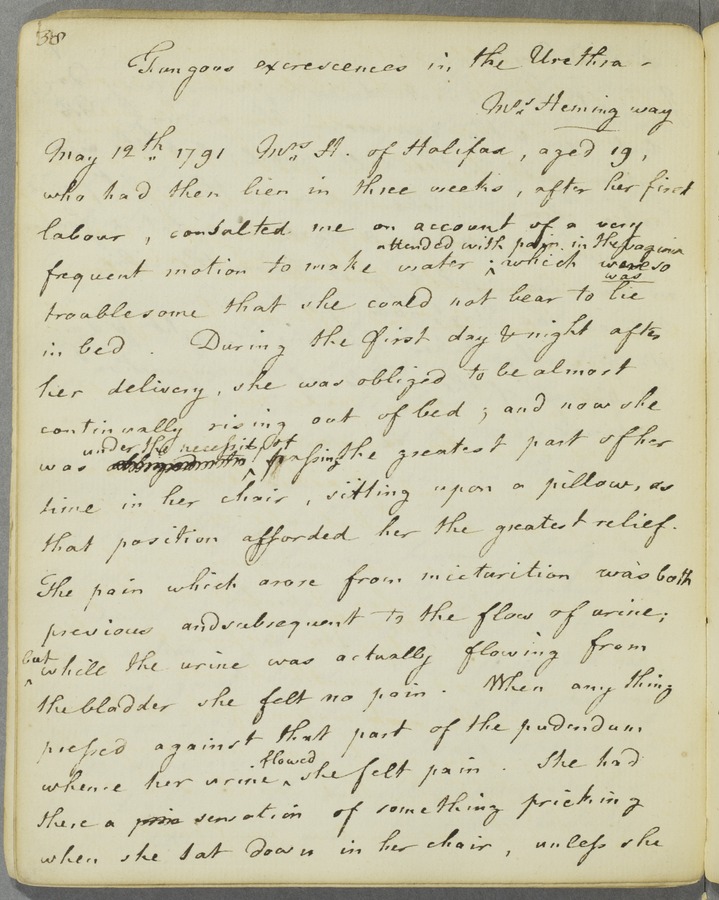 38
Fungous excrescences in the Urethra -
Mrs Hemingway
May 12th 1791 Mrs H. of Halifax, aged 19,
who had then lien in three weeks, after her first
labour, consulted me on account of a very
attended with pain in the vagina
frequent motion to make water; which were so
was
troublesome that she could not bear to lie
in bed. During the first day & night after
her delivery, she was obliged to be almost
continually rising out of bed; and now she
under the necessity of
was passing the greatest part of her
time in her chair, sitting upon a pillow, as
that position afforded her the greatest relief.
The pain which arose from micturition was both
previous and subsequent to the flow of urine;
but
while the urine was actually flowing from
the bladder she felt no pain. When any thing
pressed against that part of the pudendum
flowed
whence her urine she felt pain. She had
there a pain sensation of something pricking
when she sat down in her chair, unless she